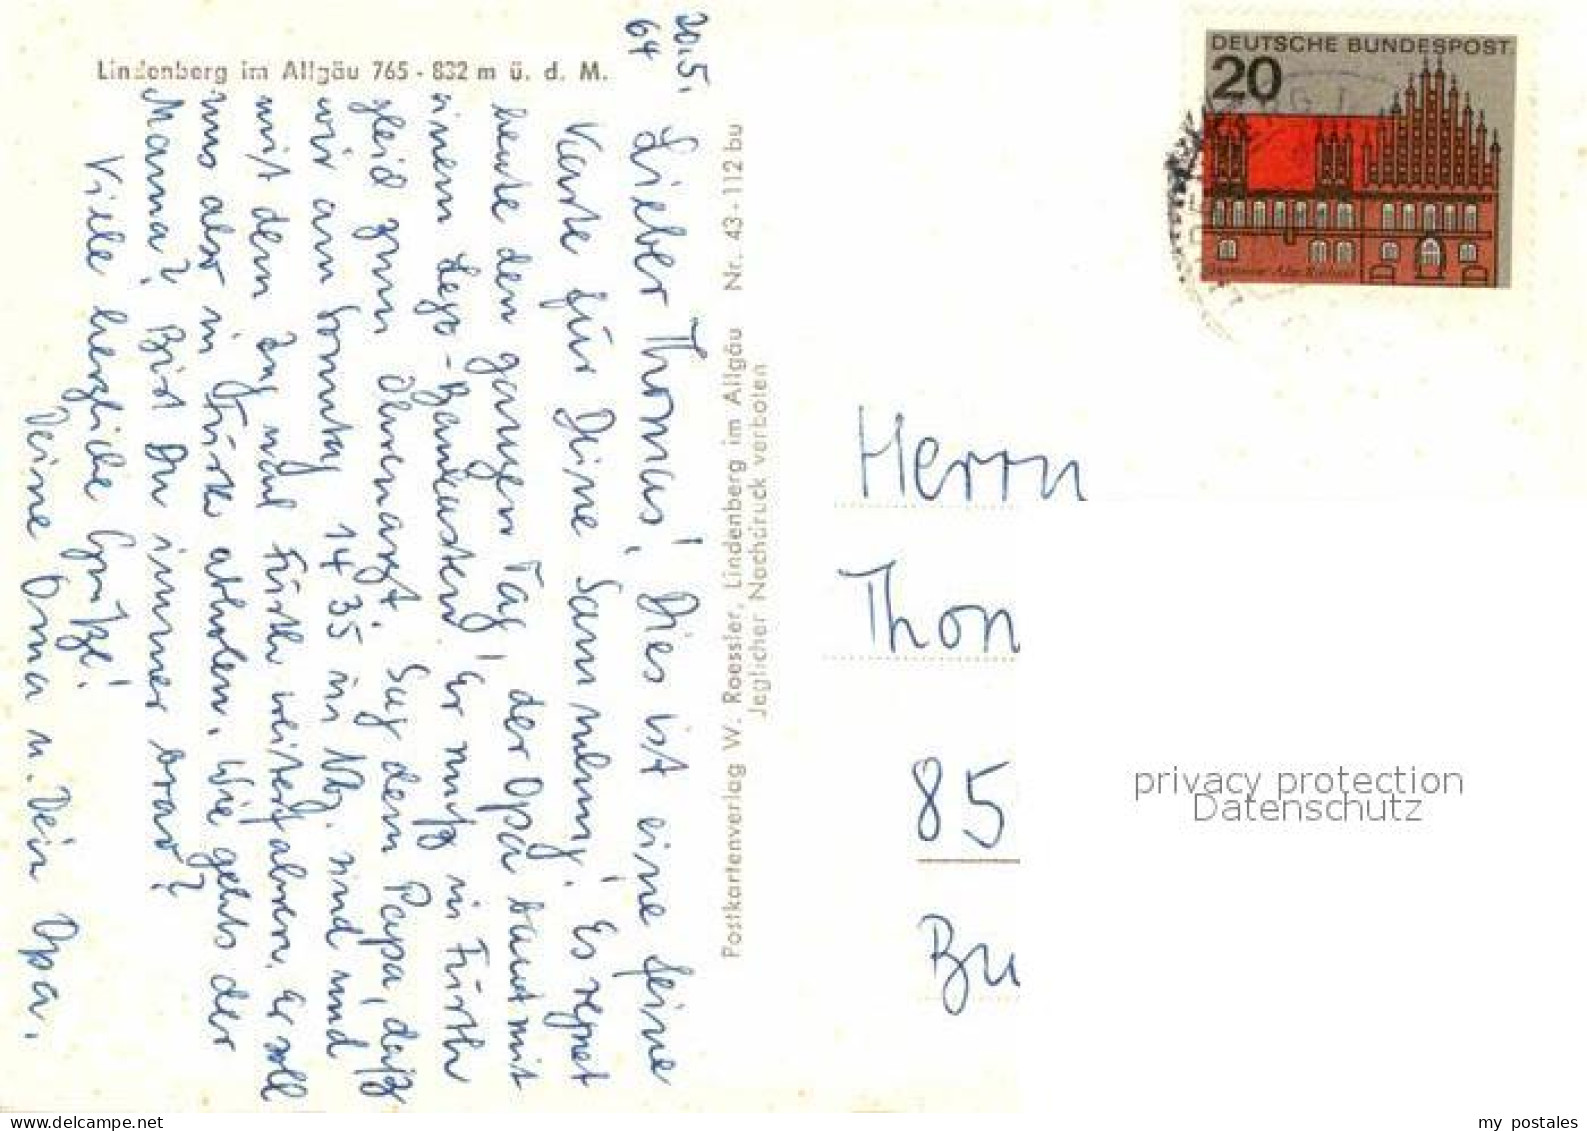 Lindenberg im Allgäu 765 - 832 m ü. d. M.
20.5.
64
Lieber Thomas! Dies ist eine feine
Karte für Deine Sammlung! Es regnet
heute den ganzen Tag, der Opa baut mit
einem Lego-Baukasten! Er muß in Fürth
gleich zum Ohrenarzt. Sag dem Papa, daß
wir am Sonntag 14 35 in Nbg. sind und
mit dem Zug nach Fürth weiterfahren. Er soll
uns aber in Fürth abholen. Wie gehts der
Mama? Bist Du immer brav?
Viele herzliche Grüße!
Deine Oma u. Dein Opa.
Postkartenverlag W. Roessler, Lindenberg im Allgäu Nr. 43-112 bu
Jeglicher Nachdruck verboten
DEUTSCHE BUNDESPOST
20
Herrn
Thom
85
Bu
privacy protection
Datenschutz
my postales